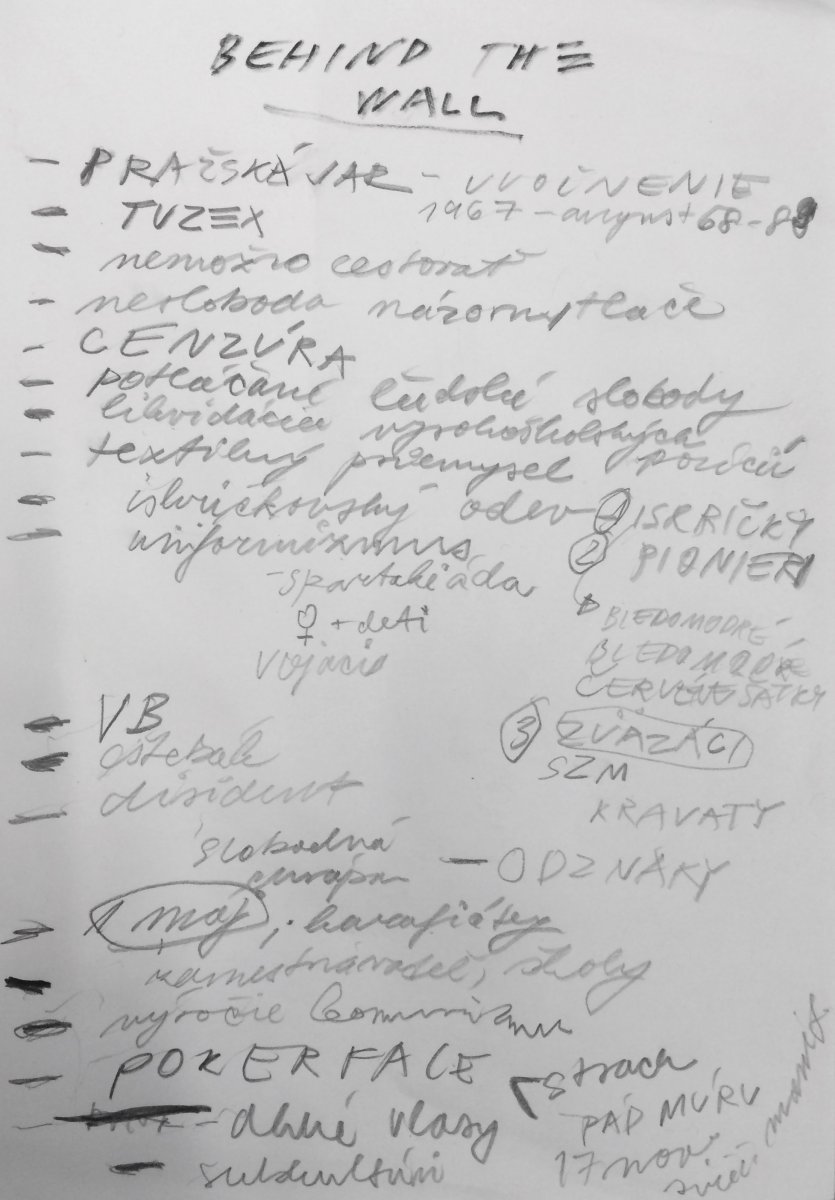 BEHIND THE
WALL
- PRAŽSKÁ JAR - UVOĽNENIE
1967 - august 68 - 89
- TUZEX
- nemožno cestovať
- nesloboda názorov, tlače
- CENZÚRA
- potláčané ľudské slobody
- likvidácia vysokoškolských pozícií
- textilný priemysel
- iskričkovský odev
- uniformizmus
- spartakiáda
♀ + deti
vojaci
① ISKRIČKY
② PIONIERI
BLEDOMODRÉ
BLEDOMODRÉ
ČERVENÉ ŠATKY
③ ZVÄZÁCI
SZM
KRAVATY
- ODZNAKY
- VB
- eštebák
- disident
slobodná
európa
- 1 máj, karafiáty
zamestnávateľ, školy
- výročie komunizmu
- POKERFACE
- dlhé vlasy
- subkultúr
strach
PÁD MÚRU
17 nov.